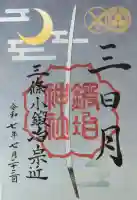 三日月
鍛冶
神社
三條小鍛冶宗近
令和七年七月